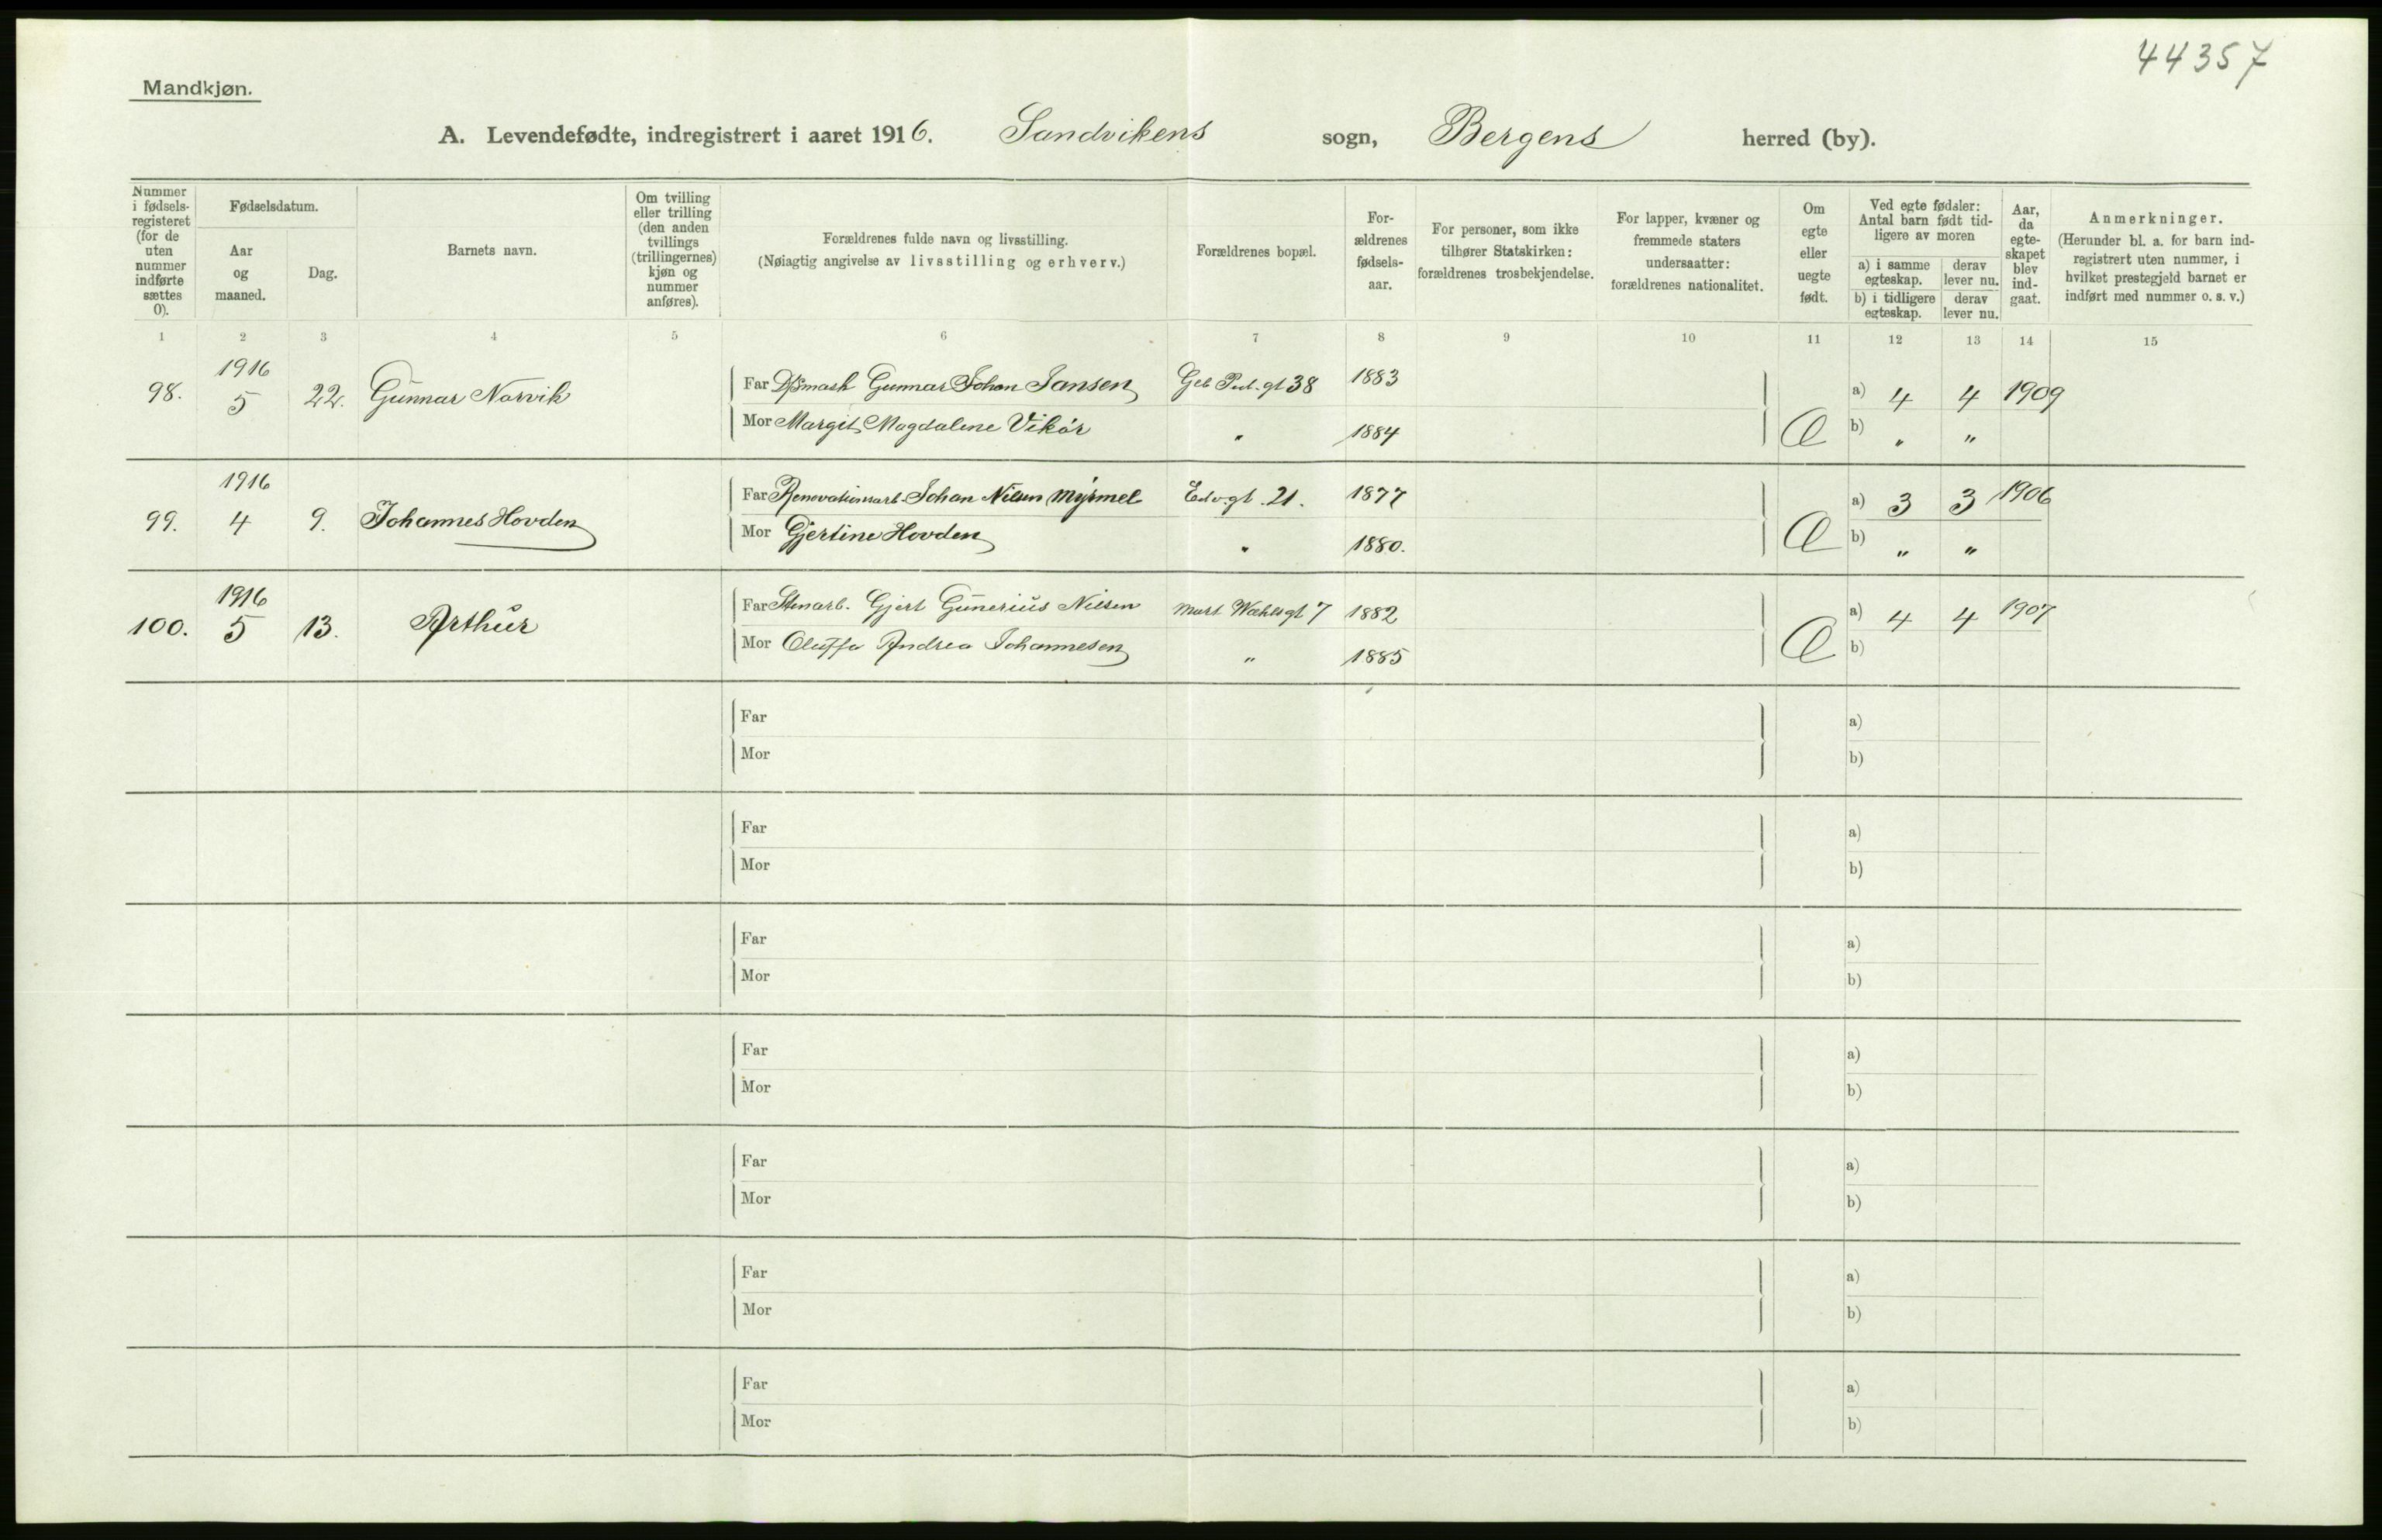 44357
Mandkjøn.
A. Levendefødte, indregistrert i aaret 1916. Sandvikens sogn, Bergens herred (by).
Nummer i fødsels-registeret (for de uten nummer indførte sættes 0).
Fødselsdatum.
Aar og maaned.
Dag.
Barnets navn.
Om tvilling eller trilling (den anden tvillings (trillingernes) kjøn og nummer anføres).
Forældrenes fulde navn og livsstilling.
(Nøiagtig angivelse av livsstilling og erhverv.)
Forældrenes bopæl.
For-ældrenes fødsels-aar.
For personer, som ikke tilhører Statskirken: forældrenes trosbekjendelse.
For lapper, kvæner og fremmede staters undersaatter: forældrenes nationalitet.
Om egte eller uegte født.
Ved egte fødsler: Antal barn født tid-ligere av moren
a) i samme egteskap. derav lever nu.
b) i tidligere egteskap. derav lever nu.
Aar, da egte-skapet blev ind-gaat.
Anmerkninger.
(Herunder bl. a. for barn ind-registrert uten nummer, i hvilket prestegjeld barnet er indført med nummer o. s. v.)
1 2 3 4 5 6 7 8 9 10 11 12 13 14 15
98. 1916 5 22. Gunnar Norvik Far Gunnar Johan Jansen 38 1883 a) 4 4 1909
Mor Margit Magdalene Vikör " 1884 Æ b) " "
99. 1916 4 9. Johannes Hovden Far Renovationsarb. Johan Nilsen Myrmel Edv.gt. 21. 1877 a) 3 3 1906
Mor Gjertine Hovden " 1880. Æ b) " "
100. 1916 5 13. Arthur Far Stenarb. Gjert Gunerius Nilsen 7 1882 a) 4 4 1907
Mor Oluffa Andrea Johannesen " 1885 Æ b)
Far a)
Mor b)
Far a)
Mor b)
Far a)
Mor b)
Far a)
Mor b)
Far a)
Mor b)
Far a)
Mor b)
Far a)
Mor b)